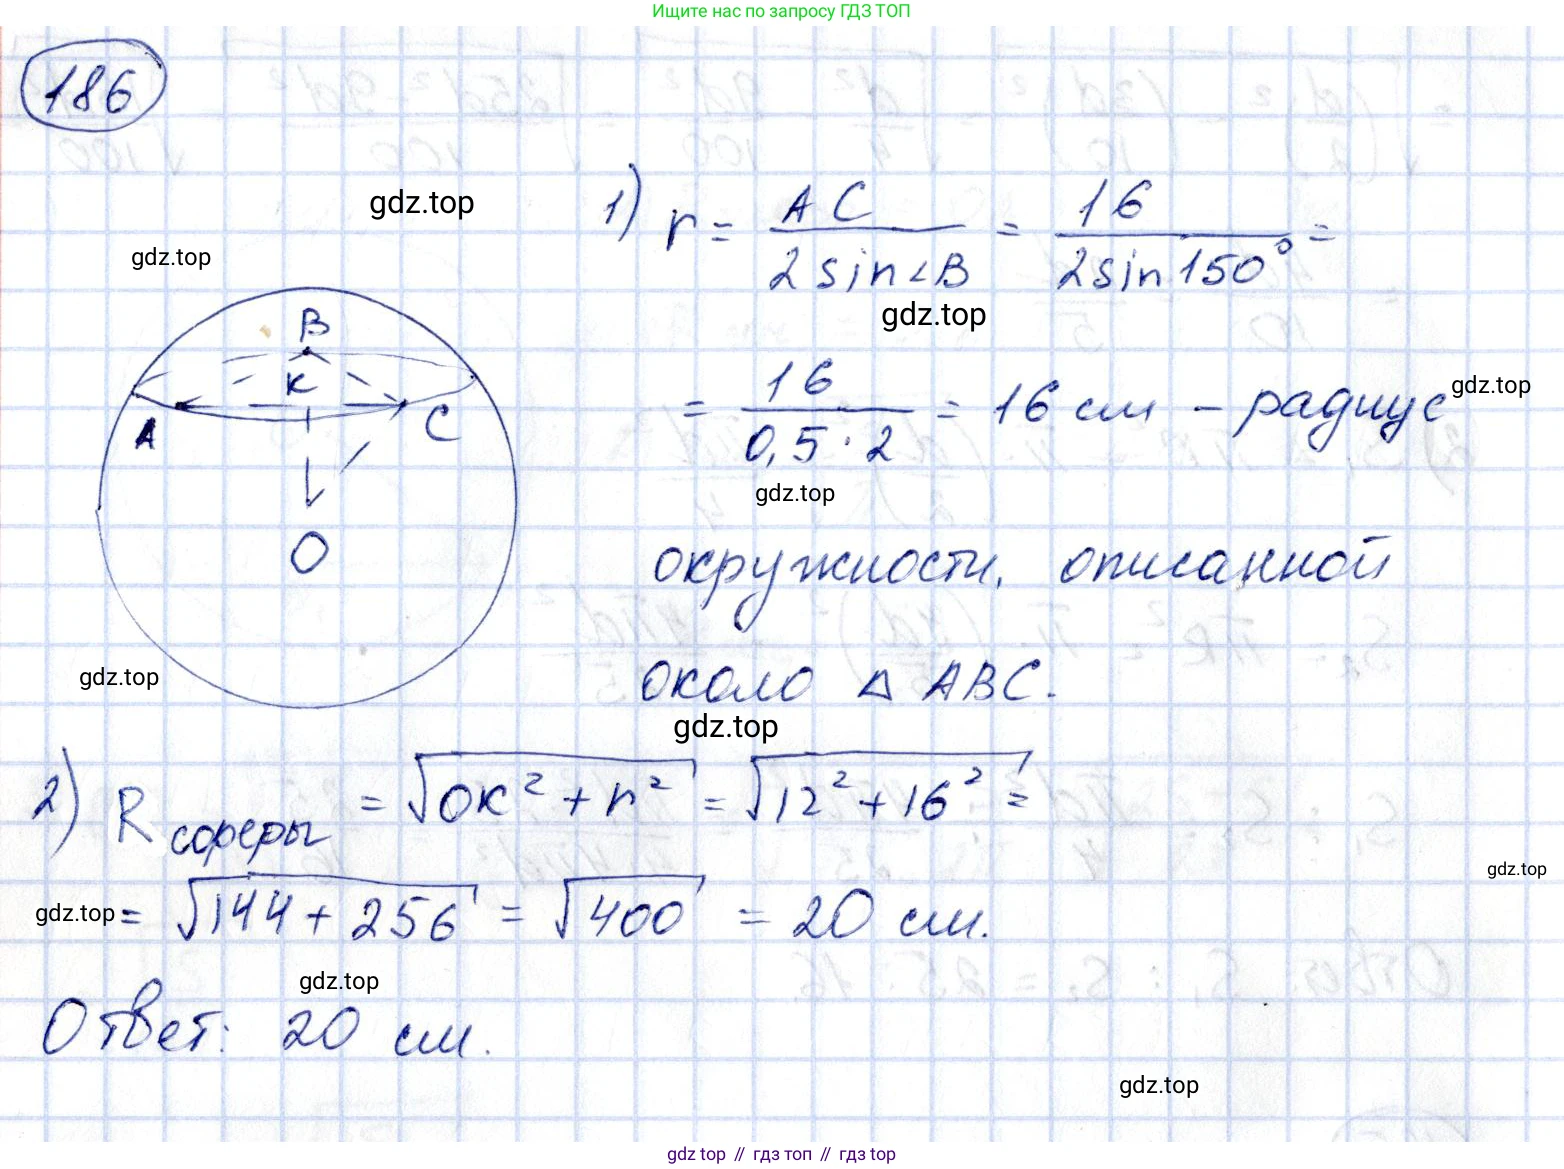 Ищите нас по запросу ГДЗ ТОП
186
gdz.top
1) r = AC / 2 sin∠B = 16 / 2 sin 150° =
gdz.top
gdz.top
B
K
A
C
O
= 16 / 0,5 · 2 = 16 см – радиус
gdz.top
gdz.top
окружности, описанной
около △ ABC.
gdz.top
gdz.top
2) R сферы = √OK² + r² = √12² + 16² =
gdz.top
gdz.top = √144 + 256 = √400 = 20 см.
gdz.top
Ответ: 20 см.
gdz.top
gdz.top // гдз топ // гдз top